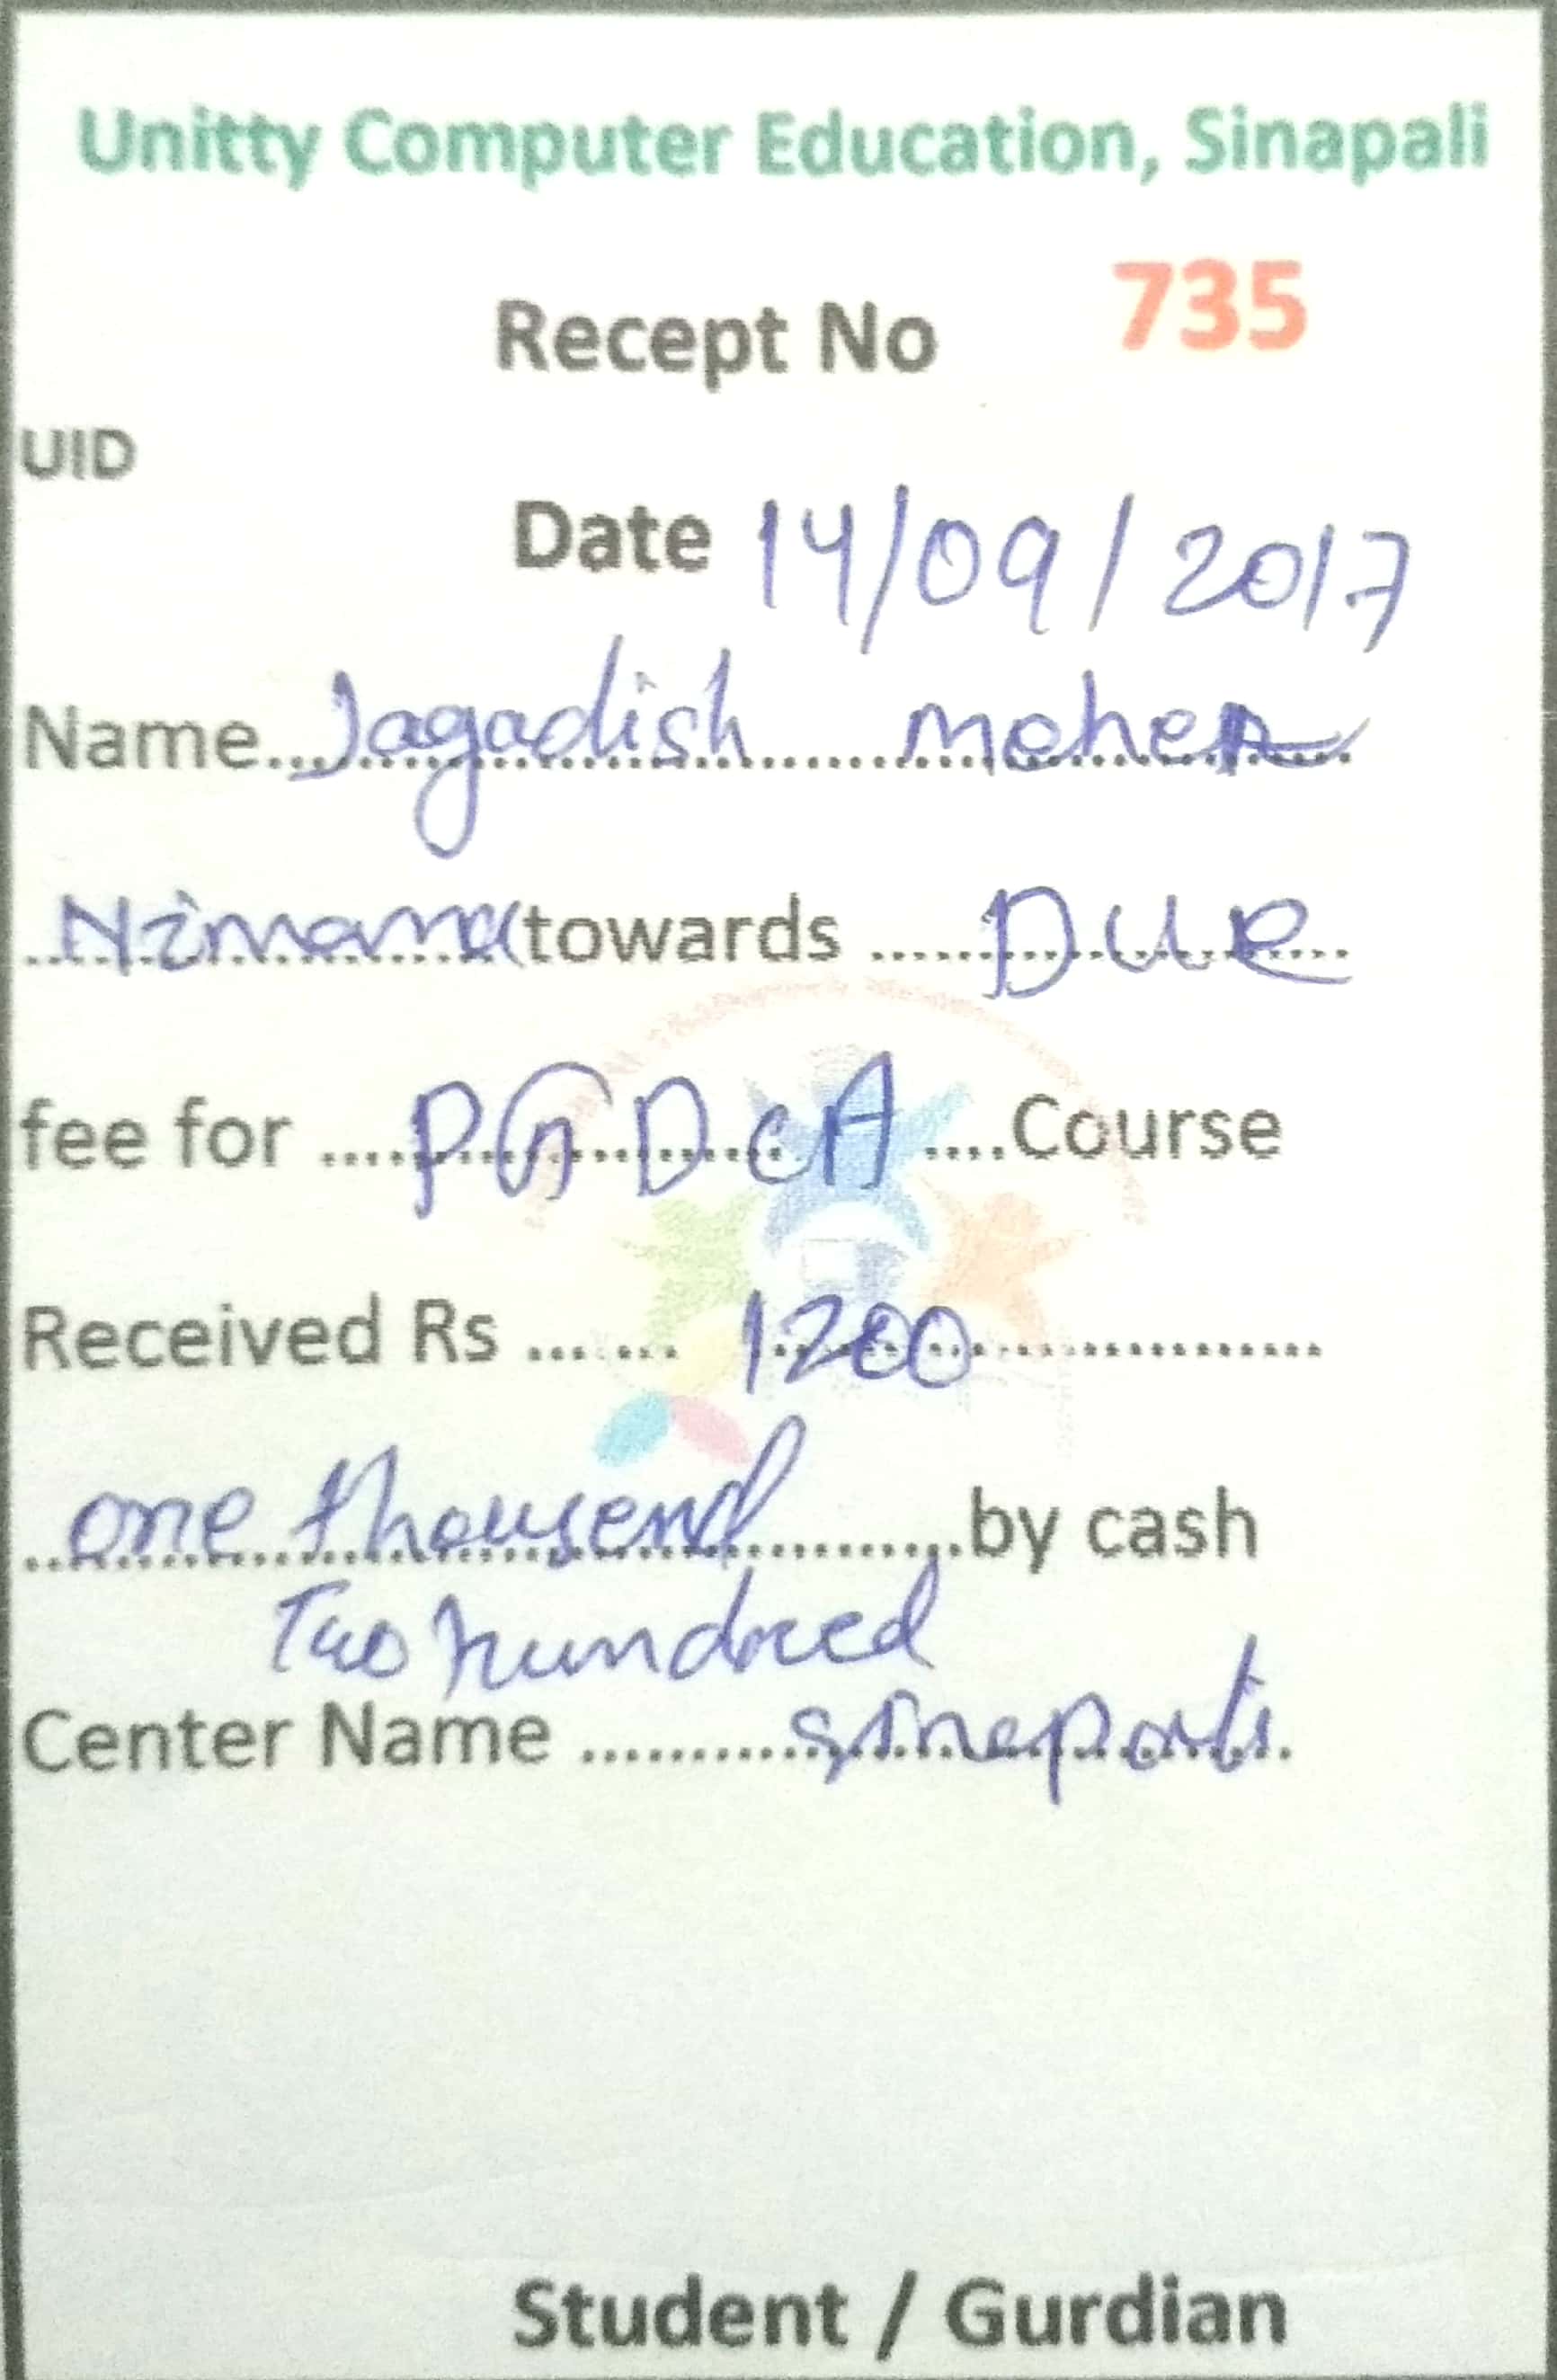 Unitty Computer Education, Sinapali
Recept No 735
UID
Date 14/09/2017
Name...Jagadish meher
Nimana towards ..... Due
fee for .... PGDCA ....Course
Received Rs ....... 1200
one thousend by cash
Two hundred
Center Name ..........
Student / Gurdian